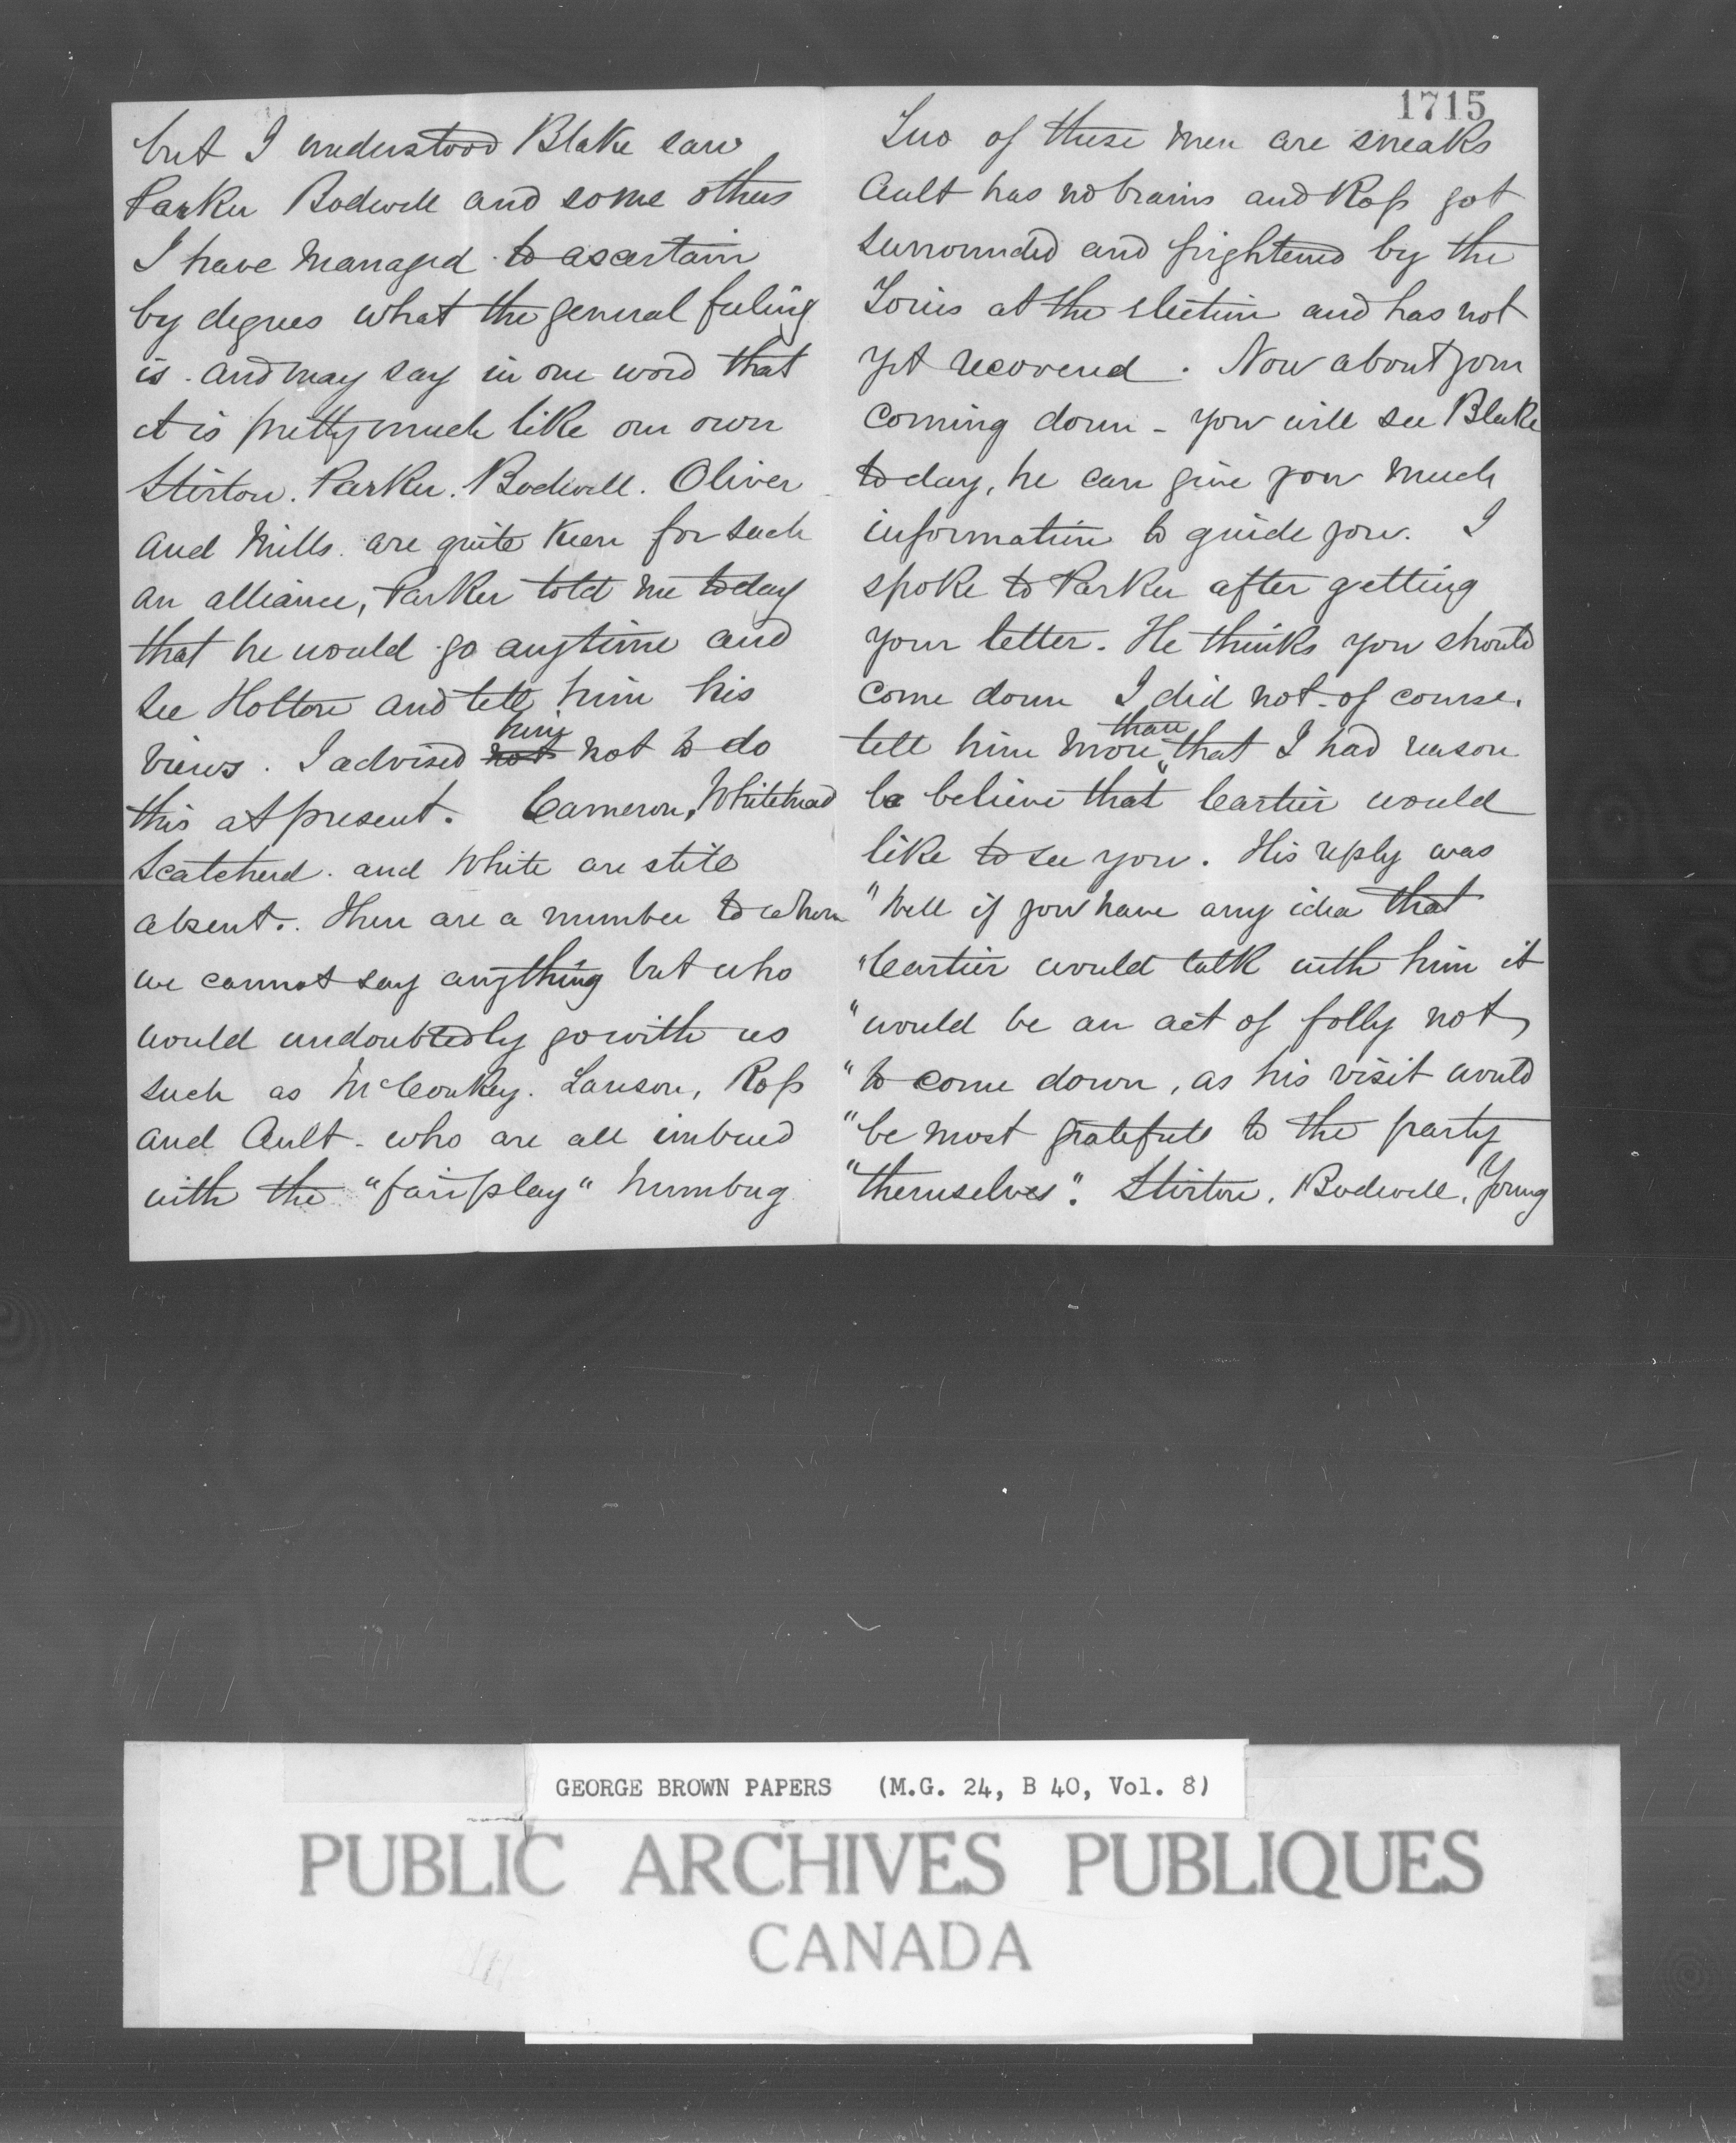 1715
but I understood Blake saw
Parker Bodwell and some others
I have managed to ascertain
by degrees what the general feeling
is. and may say in one word that
it is pretty much like our own
Stirton. Parker. Bodwell. Oliver
and Mills. are quite keen for such
an alliance, Parker told me today
that he would go anytime and
see Holton and tell him his
views. I advised not him not to do
this at present. Cameron, Whitehead
Scatcherd. and White are still
absent. There are a number to whom
we cannot say anything but who
would undoubtedly go with us
such as McConkey. Lawson, Ross
and Ault - who are all imbued
with the "fairplay" humbug
Two of these men are sneaks
Ault has no brains and Ross got
surrounded and frightened by the
Tories at the election and has not
yet recovered. Now about your
coming down - you will see Blake
today, he can give you much
information to guide you. I
spoke to Parker after getting
your letter. He thinks you should
come down I did not - of course.
tell him more than that I had reason
to believe that Cartier would
like to see you. His reply was
"Well if you have any idea that
"Cartier would talk with him it
"would be an act of folly not
"to come down, as his visit would
"be most gratefull to the party
"themselves". Stirton, Bodwell, Young
GEORGE BROWN PAPERS (M.G. 24, B 40, Vol. 8)
PUBLIC ARCHIVES PUBLIQUES
CANADA